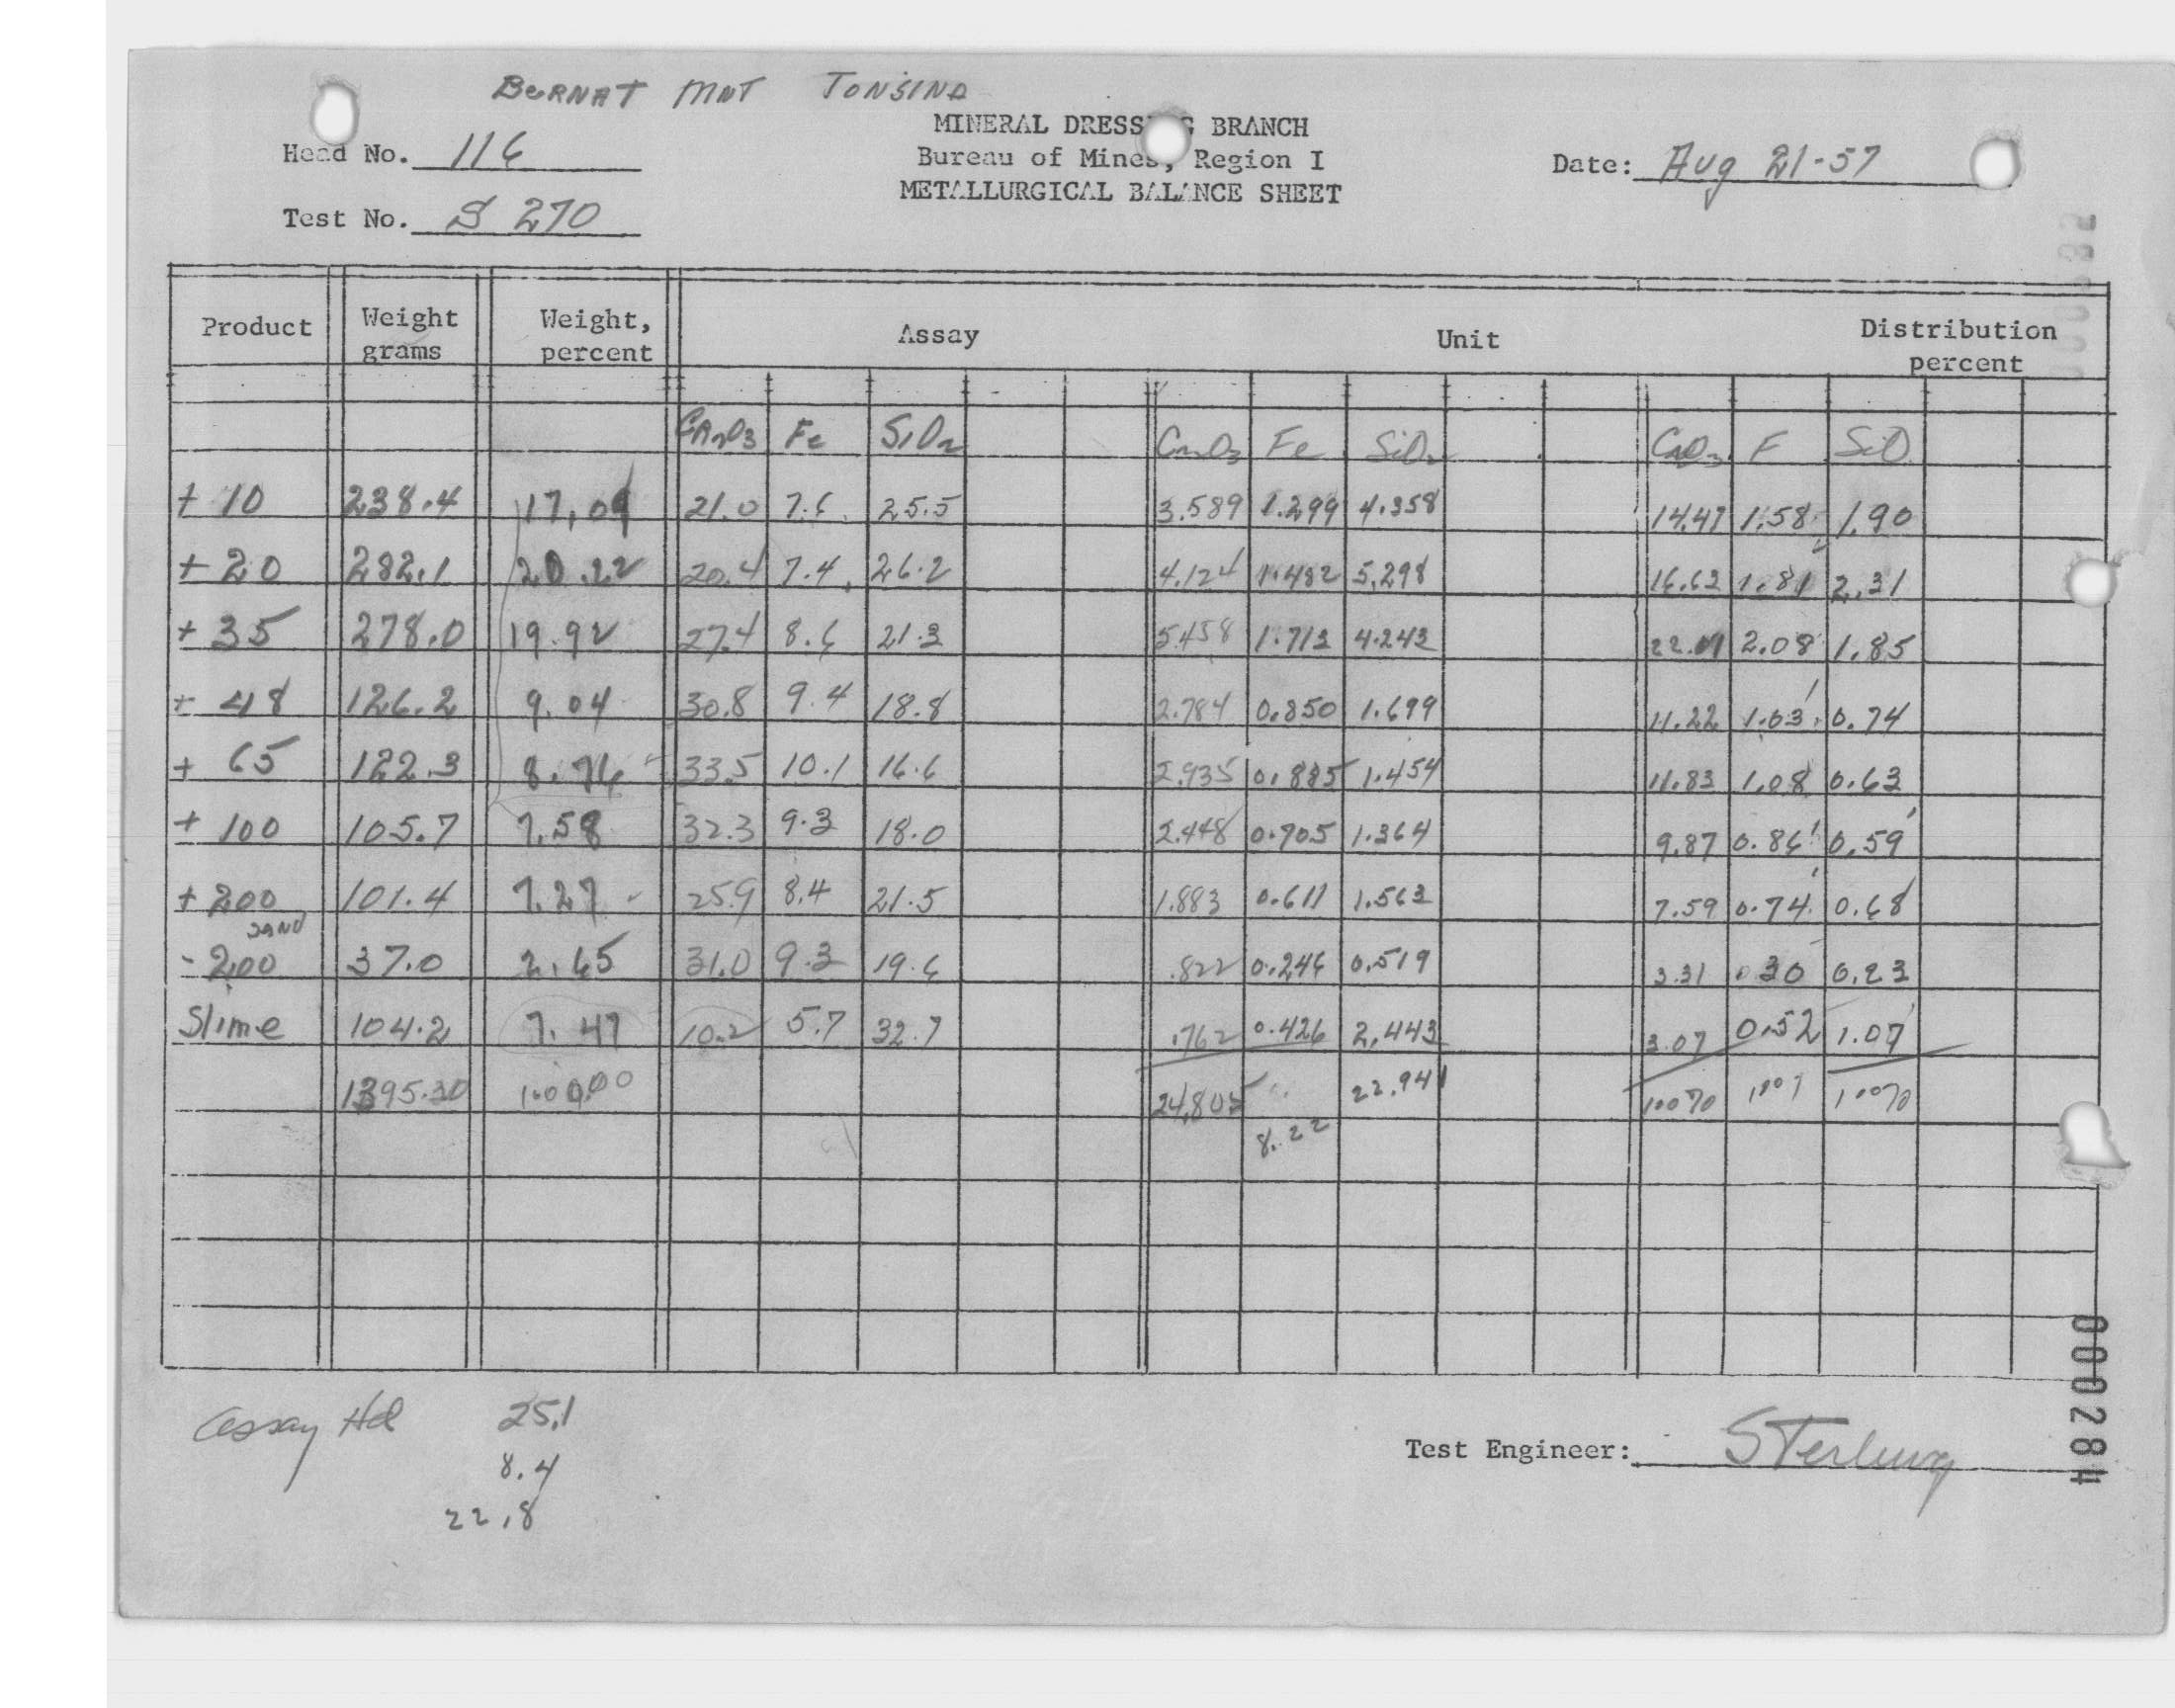 BURNAT MNT TONSINA
MINERAL DRESSING BRANCH
Head No. 116
Bureau of Mines, Region I
Date: Aug 21-57
METALLURGICAL BALANCE SHEET
Test No. S 270
Product Weight grams Weight, percent Assay Unit Distribution percent
Cr2O3 Fe SiO2 Cr2O3 Fe SiO2 Cr2O3 F SiO
+ 10 238.4 17.09 21.0 7.6 25.5 3.589 1.299 4.358 14.47 1.58 1.90
+ 20 282.1 20.22 20.4 7.4 26.2 4.124 1.482 5.298 16.63 1.81 2.31
+ 35 278.0 19.92 27.4 8.6 21.3 5.458 1.713 4.243 22.01 2.08 1.85
+ 48 126.2 9.04 30.8 9.4 18.8 2.784 0.850 1.699 11.22 1.03 0.74
+ 65 122.3 8.76 33.5 10.1 16.6 2.935 0.885 1.454 11.83 1.08 0.63
+ 100 105.7 7.58 32.3 9.3 18.0 2.448 0.705 1.364 9.87 0.86 0.59
+ 200 101.4 7.27 25.9 8.4 21.5 1.883 0.611 1.563 7.59 0.74 0.68
SAND
- 200 37.0 2.65 31.0 9.3 19.6 .822 0.246 0.519 3.31 .30 0.23
Slime 104.2 7.47 10.2 5.7 32.7 .762 0.426 2.443 3.07 0.52 1.07
1395.30 100.00 24.805 22.941
8.22
Assay Hd 25.1
8.4
22.8
Test Engineer: Sterling
000284